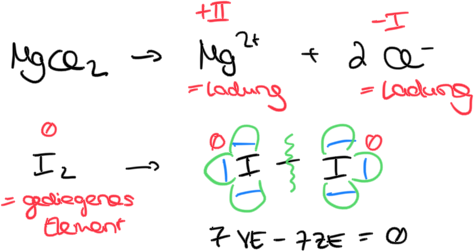 +II -I
MgCl₂ → Mg²⁺ + 2 Cl⁻
= Ladung = Ladung
0 0 0
I₂ → I - I
= gediegenes
Element
7 VE - 7 ZE = 0